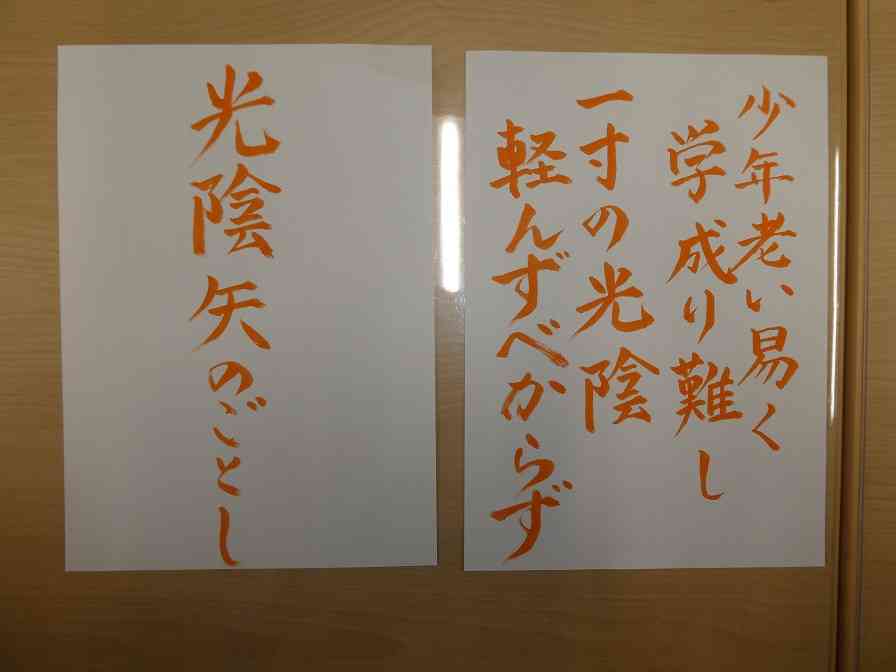 少年老い易く
学成り難し
一寸の光陰
軽んずべからず
光陰矢のごとし